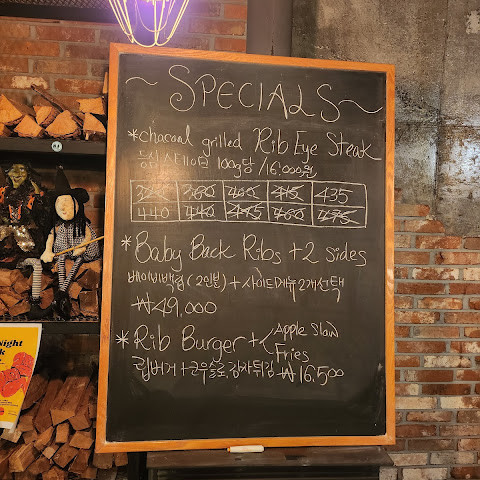 ~ SPECIALS ~
*chacoal grilled Rib Eye Steak
등심 스테이크 100g당 /16,000원
320 380 400 415 435
440 440 445 460 475
*Baby Back Ribs +2 sides
베이비백립(2인분) + 사이드메뉴 2개선택
₩49,000
*Rib Burger + Apple Slaw
Fries
립버거 + 코우슬로, 감자튀김 ₩16,500
Night